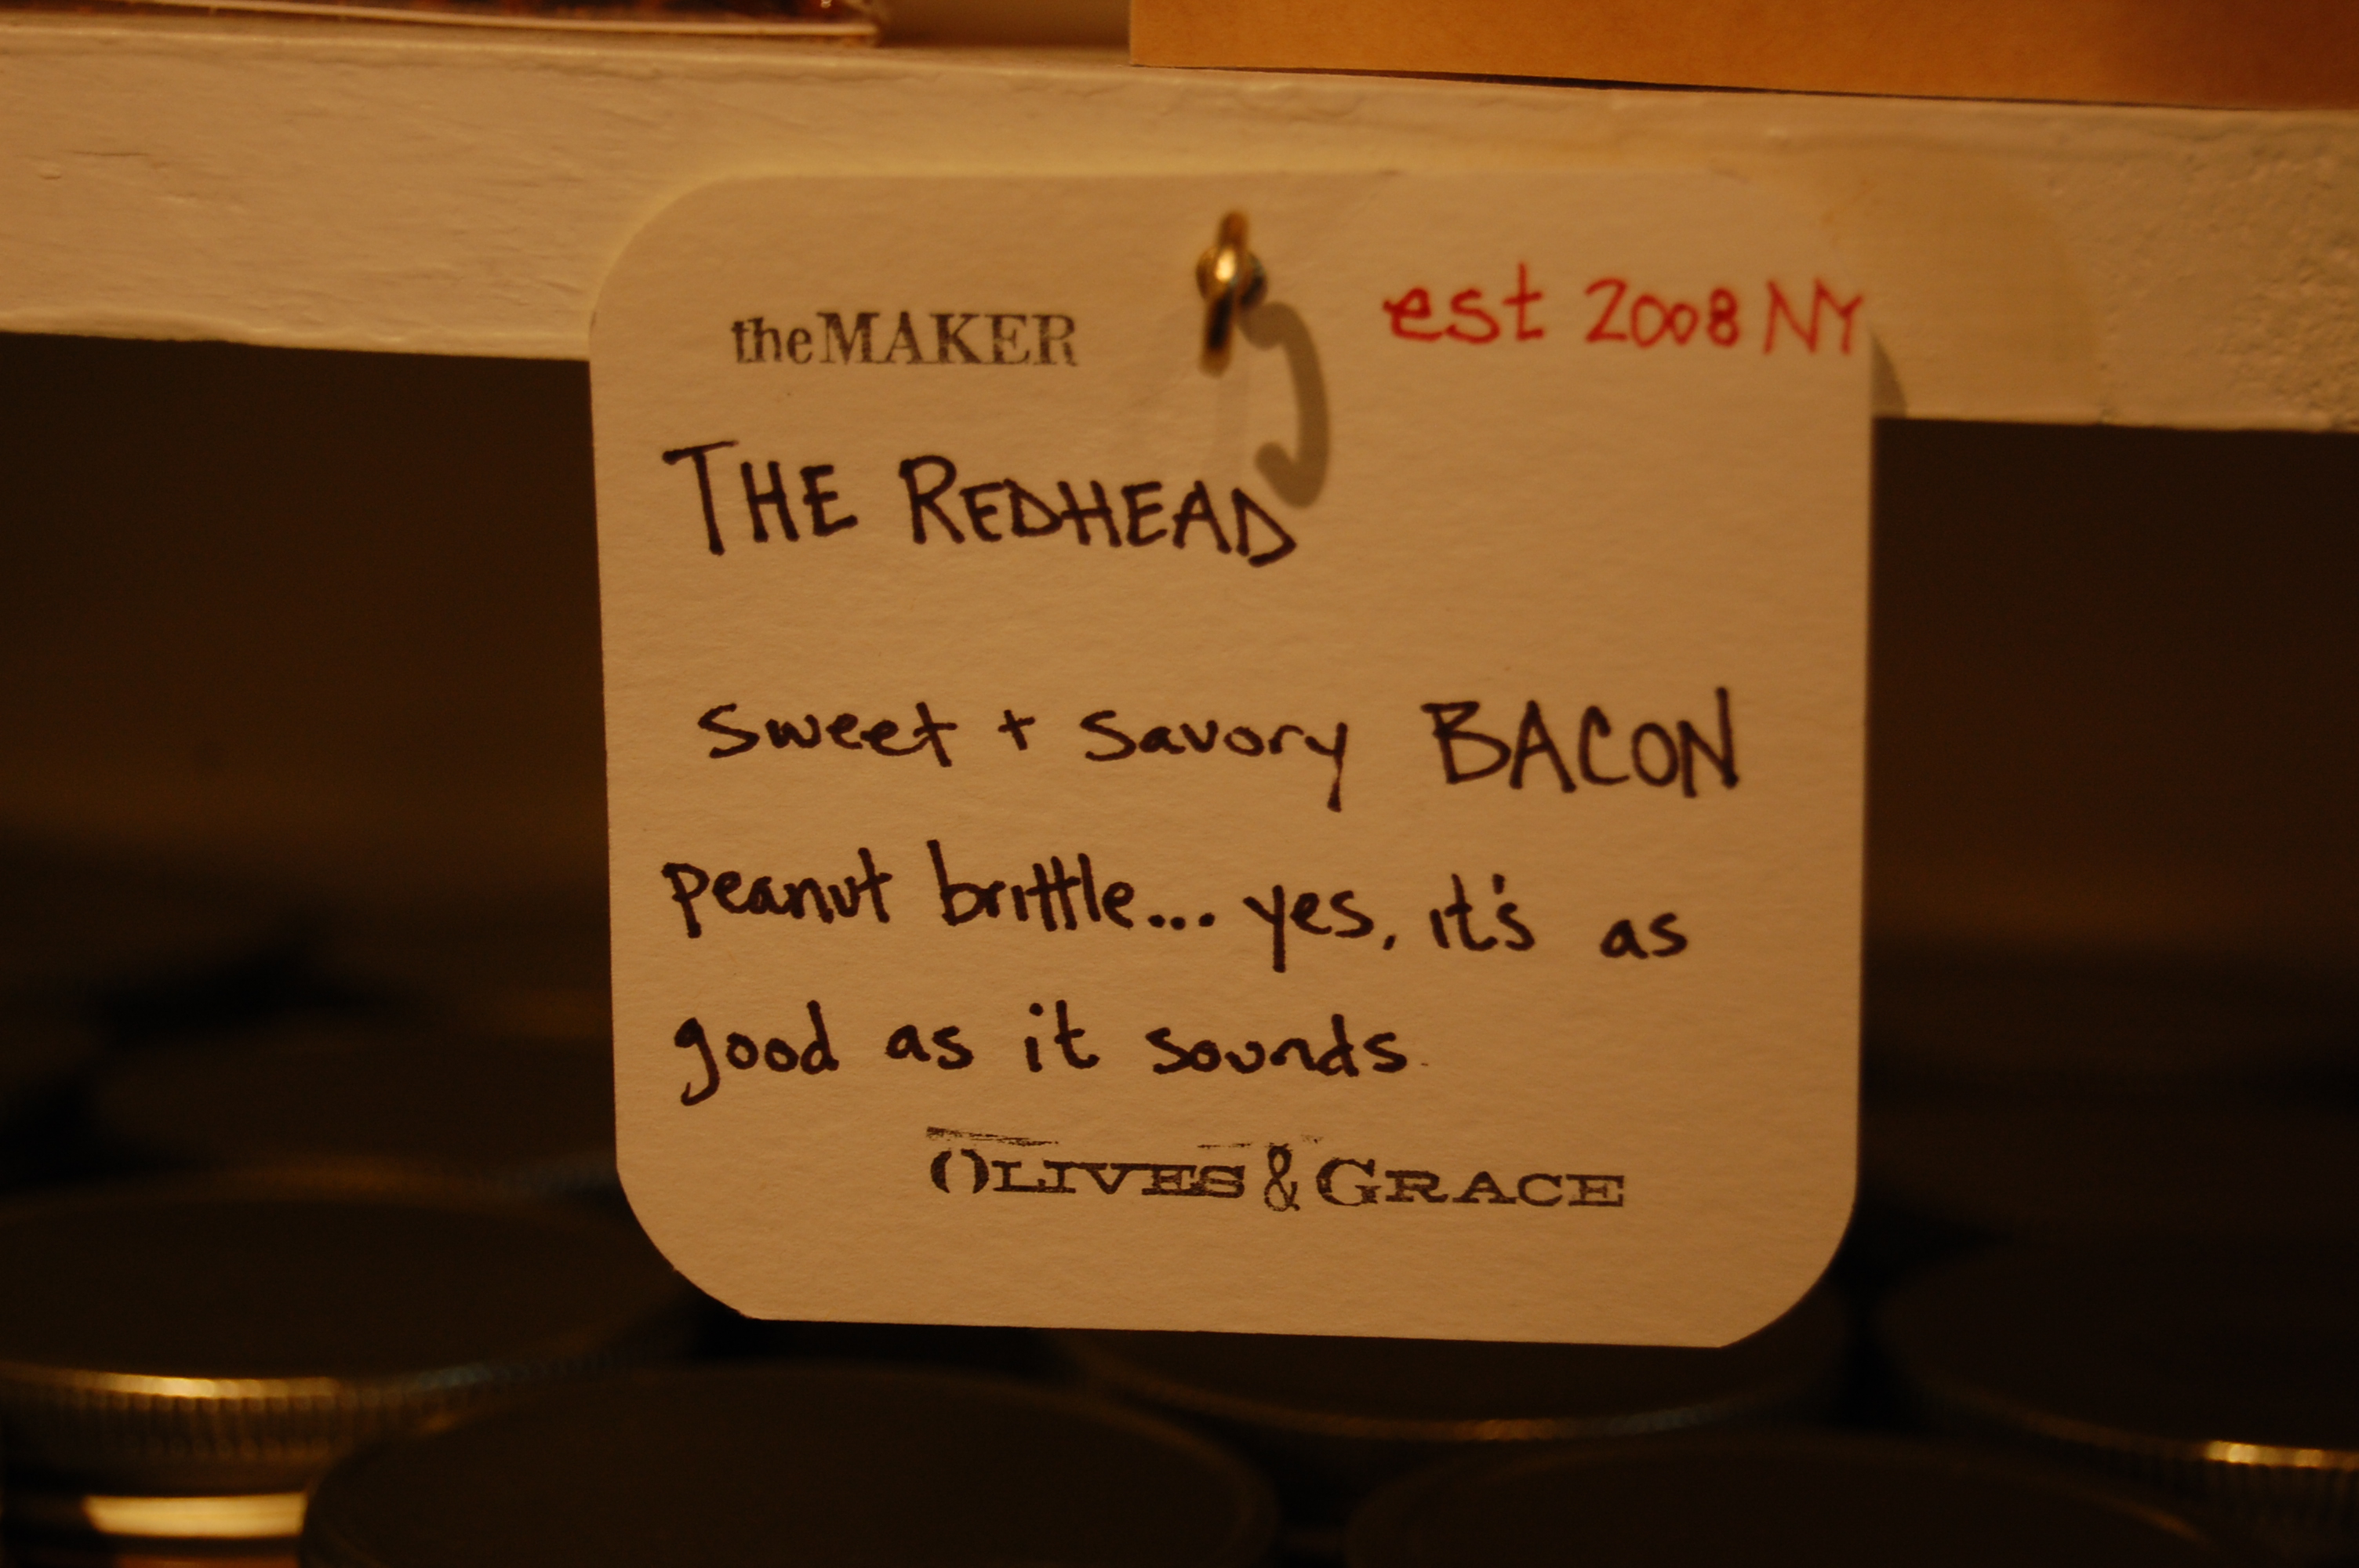 theMAKER
est 2008 NY
THE REDHEAD
sweet + savory BACON
peanut brittle... yes, it's as
good as it sounds.
OLIVES & GRACE